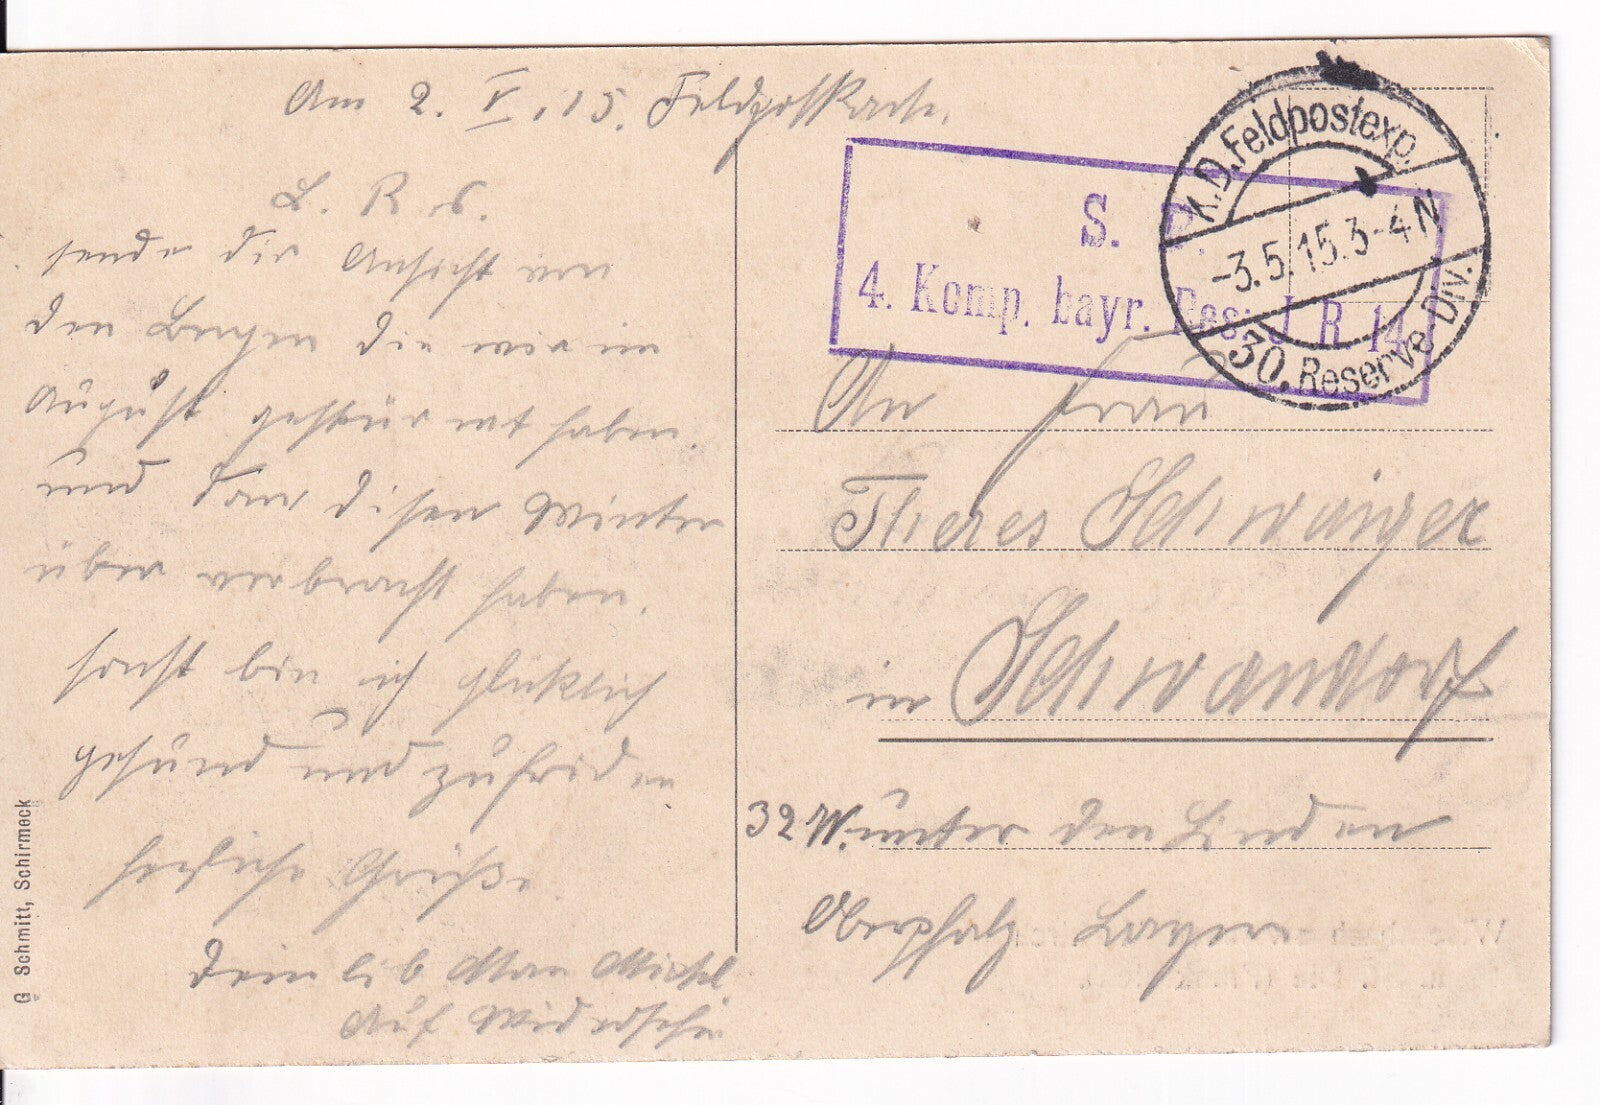 Am 2. V. 15. Feldpostkarte.
L. R s.
sende dir Ansicht von
den Bergen die wir im
August gestürmt haben.
und dan disen Winter
über verbracht haben.
sonst bin ich glüklich
gesund und zufriden
herzliche Grüße
dein lib Man Michl
Auf Widersehn
S. B.
4. Komp. bayr. Res. J R 14
K.D. Feldpostexp.
-3.5.15.3-4N
30. Reserve Div.
An Frau
Theres Schwaiger
in Schwandorf
32 W. unter den Linden
Oberpfalz Bayern
G Schmitt, Schirmeck